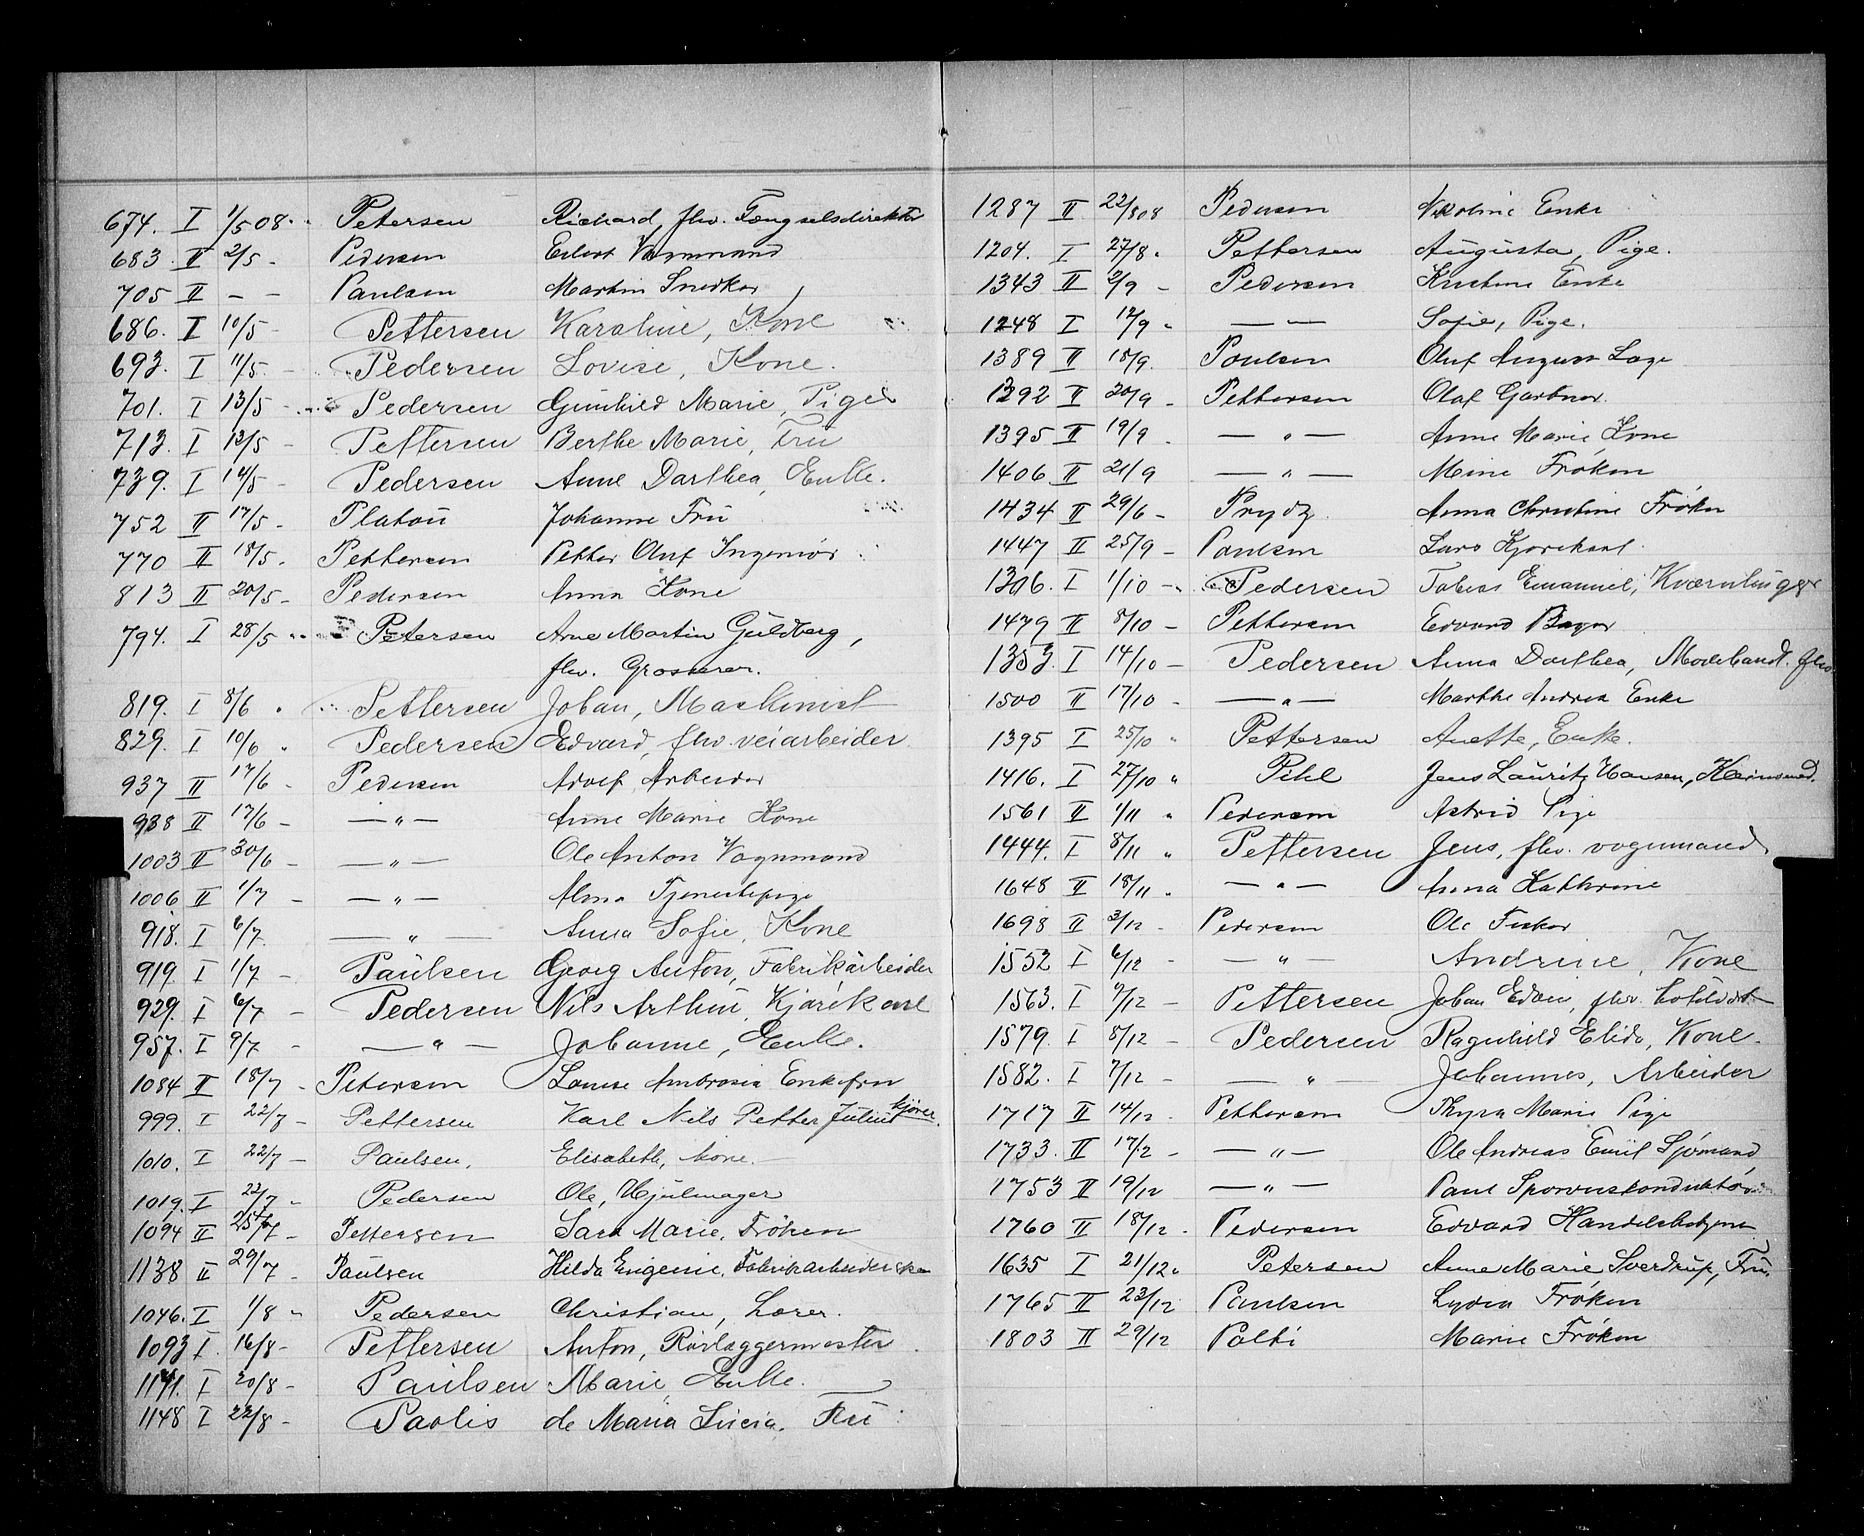 674. I 1/5 08. Petersen Richard, flw. Fængselsdirektør
683. II 2/5 - Pedersen Edvart
705 II - - Paulsen Martin Snedker
686. I 10/5 - Pettersen Karoline, Kone
693. I 11/5 - Pedersen Lovise, Kone.
701. I 13/5 - Pedersen Gunhild Marie, Pige
713. I 12/5 - Pettersen Berthe Marie, Fru
739. I 14/5 - Pedersen Anne Darthea, Enke.
752 II 17/5 - Platou Johanne Fru
770 II 18/5. Pettersen Petter Oluf Ingeniør
813 II 20/5 - Pedersen Anna Kone
794. I 28/5 Petersen Arne Martin Guldberg,
flw. Grosserer.
819. I 8/6 Pettersen Johan, Maskinist
829. I 10/6 Pedersen Edvard, flw. veiarbeider
937 II 17/6 - Pedersen Adolf Arbeider
938 II 17/6 - —„— Anne Marie Kone
1003 II 30/6 - —„— Ole Anton Vognmand
1006 II 1/7 - —„— Alma Tjenestepige
918. I 6/7. —„— Anna Sofie, Kone
919. I 1/7 - Paulsen Georg Anton, Fabrikarbeider
929. I 6/7 - Pedersen Nils Arthur, Kjørekarl
957. I 9/7 - —„— Johanne, Enke.
1084 II 18/7 - Petersen Louise Ambrosia Enkefru
999. I 22/7 - Pettersen Karl Nils Petter Julius kjører.
1010. I 22/7 - Paulsen, Elisabeth, kone.
1019. I 22/7 - Pedersen Ole, Hjulmager
1094 II 25/7 - Pettersen Sara Marie, Frøken
1138 II 29/7 - Paulsen Hilda Eugenie, Fabrikarbeiderske
1046. I 1/8 „ Pedersen Christian, Lærer.
1093 I. 16/8 - Pettersen Anton, Rørlæggermester
1141. I 20/8 - Paulsen Marie Enke.
1148 I 22/8 - Paolis de Maria Lucia, Fru
1287 II 22/8 08 Pedersen Nikoline Enke
1204. I 27/8 „ Pettersen Augusta, Pige.
1343 II 2/9 - Pedersen Kristine Enke
1248 I 12/9 „ —„— Sofie, Pige.
1389 II 18/9. Poulsen Oluf August Læge
1392 II 20/9 - Pettersen Olaf Gartner.
1395 II 19/9 . —„— Anne Marie Kone
1406 II 21/9 —„— Mine Frøken
1434 II 29/6 - Prydz Anna Christine Frøken
1447 II 25/9 - Paulsen Lars Kjørekarl
1306. I 1/10 - Pedersen Tobias Emanuel, Kværnhugger
1479 II 8/10 - Pettersen Edvard Bager
1353. I 14/10 - Pedersen Anna Dorthea, Modehandl. flw.
1500 II 17/10 - —„— Marthe Andrea Enke
1395 I 25/10 „ Pettersen Anette, Enke.
1416. I 27/10 „ Pihl Jens Lauritz Hansen,
1561 II 1/11 „ Pedersen Astrid Pige
1444. I 8/11 „ Pettersen Jens, flw. vognmand.
1648 II 18/11 „ —„— Anna Kathrine
1698 II 3/12 - Pedersen Ole Fisker
1552 I 6/12 - —„— Andrine, Kone
1563. I 9/12 - Pettersen Johan Edv., flw.
1579 I 8/12 - Pedersen Ragnhild Elida, Kone.
1582. I 7/12 - —„— Johannes, Arbeider
1717 II 14/12. Pettersen Thyra Marie Pige
1733. II 17/12 - —„— Ole Andreas Emil Sjømand
1753 II 19/12 —„— Paul Sporveiskonduktør
1760 II 18/12. Pedersen Edvard Handelsbetjent
1635 I 21/12 „ Petersen Anne Marie Sverdrup, Fru.
1765 II 23/12 Paulsen Lydia Frøken
1803 II 29/12 Marie Frøken